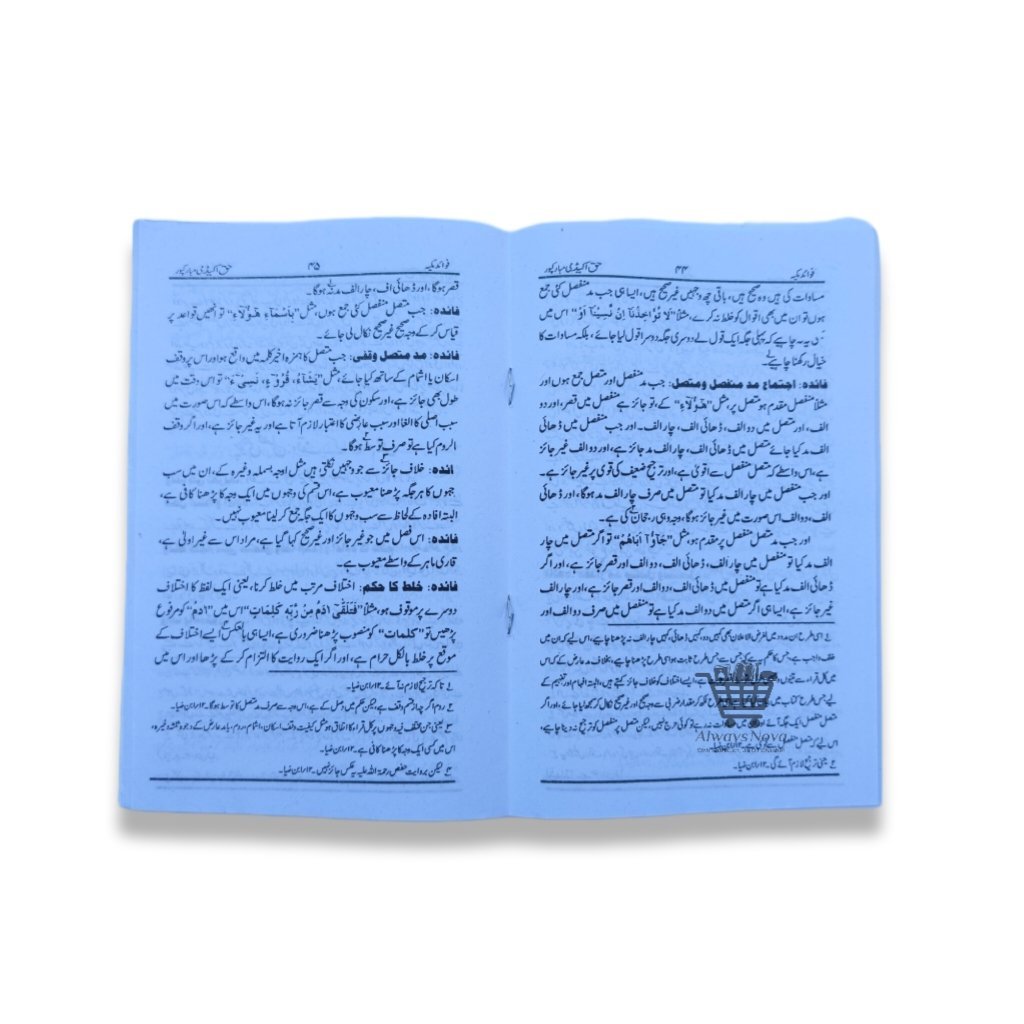 فوائد مکیہ ۴۴ حق اکیڈمی مبارکپور
مساوات کی ہیں وہ صحیح ہیں، باقی چھ وجہیں غیر صحیح ہیں، ایسا ہی جب مد منفصل کئی جمع
ہوں تو ان میں بھی اقوال کو خلط نہ کرے، مثلاً "لَا تُؤَاخِذْنَآ اِنْ نَّسِیْنَآ اَوْ" اس میں
یہ نہ چاہیے کہ پہلی جگہ ایک قول لے دوسری جگہ دوسرا قول لیا جائے، بلکہ مساوات کا
خیال رکھنا چاہیے
فائدہ: اجتماع مد منفصل ومتصل: جب مد منفصل اور متصل جمع ہوں اور
مثلاً منفصل مقدم ہو متصل پر، مثل "هٰٓؤُلَآءِ" کے، تو جائز ہے منفصل میں قصر، اور دو
الف، اور متصل میں دو الف، ڈھائی الف، چار الف۔ اور جب منفصل میں ڈھائی
الف مد کیا جائے متصل میں ڈھائی الف، چار الف مد جائز ہے، اور دو الف غیر جائز
ہے، اس واسطے کہ متصل منفصل سے اقویٰ ہے، اور ترجیح ضعیف کی قوی پر غیر جائز ہے۔
اور جب منفصل میں چار الف مد کیا تو متصل میں صرف چار الف مد ہوگا، اور ڈھائی
الف، دو الف اس صورت میں غیر جائز ہوگا، وجہ وہی رجحان کی ہے۔
اور جب مد متصل منفصل پر مقدم ہو، مثل "جَآؤُٓا اَبَاهُمْ" تو اگر متصل میں چار
الف مد کیا تو منفصل میں چار الف، ڈھائی الف، دو الف اور قصر جائز ہے، اور اگر
ڈھائی الف مد کیا ہے تو منفصل میں ڈھائی الف، دو الف اور قصر جائز ہے، اور چار الف
غیر جائز ہے، ایسا ہی اگر متصل میں دو الف مد کیا ہے تو منفصل میں صرف دو الف اور
یعنی ترجیح لازم آئے گی۔ ۱۲/ ابن ضیا۔
AlwaysNova
فوائد مکیہ ۴۵ حق اکیڈمی مبارکپور
قصر ہوگا، اور ڈھائی الف، چار الف مد نہ ہوگا۔
فائدہ: جب متصل منفصل کئی جمع ہوں، مثل "بِاَسْمَآءِ هٰٓؤُلَآءِ" تو انھیں قواعد پر
قیاس کر کے وجہ صحیح غیر صحیح نکال لی جائے۔
فائدہ: مد متصل وقفی: جب متصل کا ہمزہ اخیر کلمہ میں واقع ہو اور اس پر وقف
اسکان یا اشمام کے ساتھ کیا جائے، مثل "یَشَآءُ، قُرُوْٓءٍ، نَسِیْٓءُ" تو اس وقت میں
طول بھی جائز ہے، اور سکون کی وجہ سے قصر جائز نہ ہوگا، اس واسطے کہ اس صورت میں
سبب اصلی کا الغا اور سبب عارضی کا اعتبار لازم آتا ہے اور یہ غیر جائز ہے، اور اگر وقف
بالروم کیا ہے تو صرف توسط ہوگا۔
ائدہ: خلاف جائز سے جو وجہیں نکلتی ہیں مثل اوجہ بسملہ وغیرہ کے، ان میں سب
جہوں کا ہر جگہ پڑھنا معیوب ہے، اس قسم کی وجہوں میں ایک وجہ کا پڑھنا کافی ہے،
البتہ افادہ کے لحاظ سے سب وجہوں کا ایک جگہ جمع کر لینا معیوب نہیں۔
فائدہ: اس فصل میں جو غیر جائز اور غیر صحیح کہا گیا ہے، مراد اس سے غیر اولیٰ ہے،
قاری ماہر کے واسطے معیوب ہے۔
فائدہ: خلط کا حکم: اختلاف مرتب میں خلط کرنا، یعنی ایک لفظ کا اختلاف
دوسرے پر موقوف ہو، مثلاً "فَتَلَقّٰٓی اٰدَمُ مِنْ رَّبِّهٖ كَلِمَاتٍ" اس میں "اٰدَمُ" کو مرفوع
پڑھیں تو "کلمات" کو منصوب پڑھنا ضروری ہے، ایسا ہی بالعکس ایسے اختلاف کے
موقع پر خلط بالکل حرام ہے، اور اگر ایک روایت کا التزام کر کے پڑھا اور اس میں
تاکہ ترجیح لازم نہ آئے۔ ۱۲/ ابن ضیا۔
اس میں کسی ایک وجہ کا پڑھنا کافی ہے۔ ۱۲/ ابن ضیا۔
لیکن بروایت حفص رحمۃ اللہ علیہ یہ عکس جائز نہیں۔ ۱۲/ ابن ضیا۔